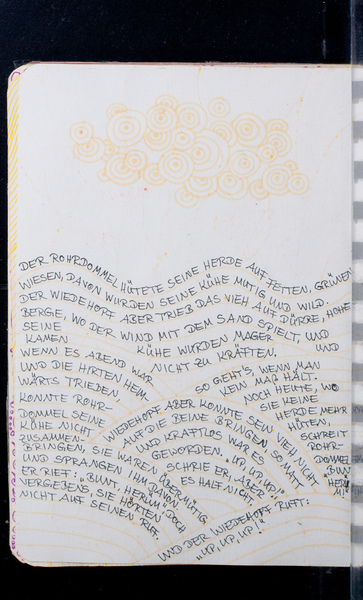 DER ROHRDOMMEL HÜTETE SEINE HERDE AUF FETTEN, GRÜNEN
WIESEN, DAVON WURDEN SEINE KÜHE MUTIG UND WILD.
DER WIEDEHOPF ABER TRIEB DAS VIEH AUF DÜRRE, HOHE
BERGE, WO DER WIND MIT DEM SAND SPIELT, UND
SEINE KÜHE WURDEN MAGER UND
KAMEN NICHT ZU KRÄFTEN.
WENN ES ABEND WAR
UND DIE HIRTEN HEIM-
WÄRTS TRIEBEN,
KONNTE ROHR-
DOMMEL SEINE
KÜHE NICHT
ZUSAMMEN-
BRINGEN, SIE WAREN ÜBERMÜTIG
UND SPRANGEN IHM DAVON.
ER RIEF: „BUNT, HERÜM", DOCH
VERGEBENS, SIE HÖRTEN
NICHT AUF SEINEN RUF.
WIEDEHOPF ABER KONNTE SEIN VIEH NICHT
AUF DIE BEINE BRINGEN, SO MATT
UND KRAFTLOS WAR ES
GEWORDEN. „UP, UP, UP!"
SCHRIE ER, ABER
ES HALF NICHT.
SO GEHT'S, WENN MAN
KEIN MAß HÄLT.
NOCH HEUTE, WO
SIE KEINE
HERDE MEHR
HÜTEN,
SCHREIT
ROHR-
DOMMEL
UND DER WIEDEHOPF RUFT:
„UP, UP, UP!"